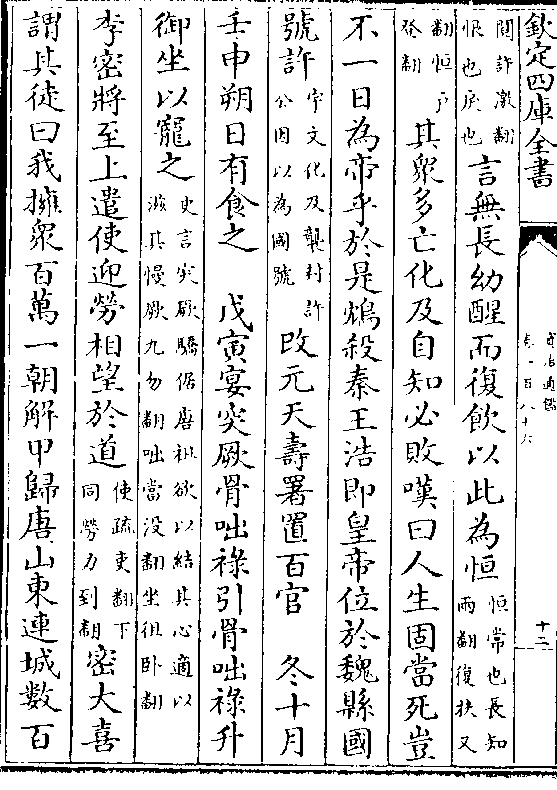 欽定四庫全書
資治通鑑
卷一百八十六
十二
鬩許激翻
恨也戾也
言無長幼醒而復飲以此為恒
恒常也長知
兩翻復扶又
翻恒戶
登翻
其衆多亡化及自知必敗嘆曰人生固當死豈
不一日為帝乎於是鴆殺秦王浩即皇帝位於魏縣國
號許
宇文化及襲封許
公因以為國號
改元天壽署置百官　冬十月
壬申朔日有食之　戊寅宴突厥骨咄祿引骨咄祿升
御坐以寵之
史言突厥驕倨唐祖欲以結其心適以
滋其慢厥九勿翻咄當没翻坐徂卧翻
李密將至上遣使迎勞相望於道
使疏吏翻下
同勞力到翻
密大喜
謂其徒曰我擁衆百萬一朝解甲歸唐山東連城數百